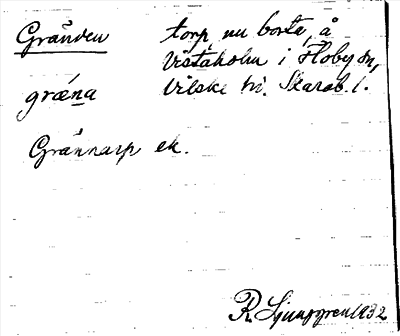 Grännen torp nu borta, å
Vistaholm i Floby sn,
græna Vilske hd. Skarab. l.
Grännarp ek.
R. Ljunggren 1932